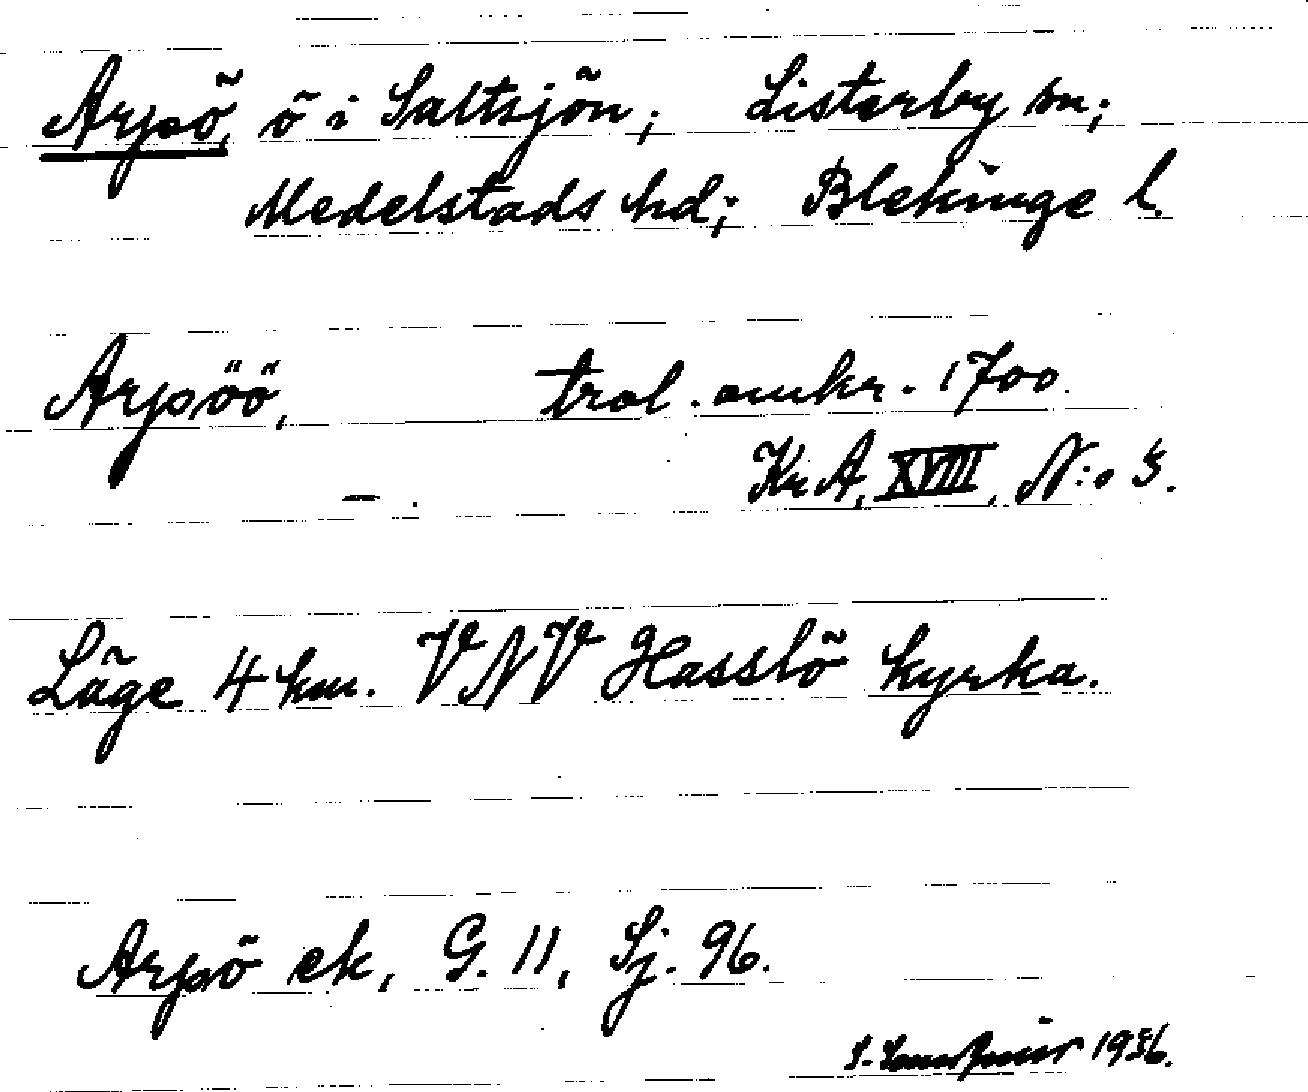 Arpö, ö i Saltsjön; Listerby sn;
Medelstads hd; Blekinge l.
Arpöö, trol. omkr. 1700.
— . Kr A, XVIII, N:o 5.
Läge 4 km. VNV Hasslö kyrka.
Arpö ek, G. 11, Sj. 96.
1936.